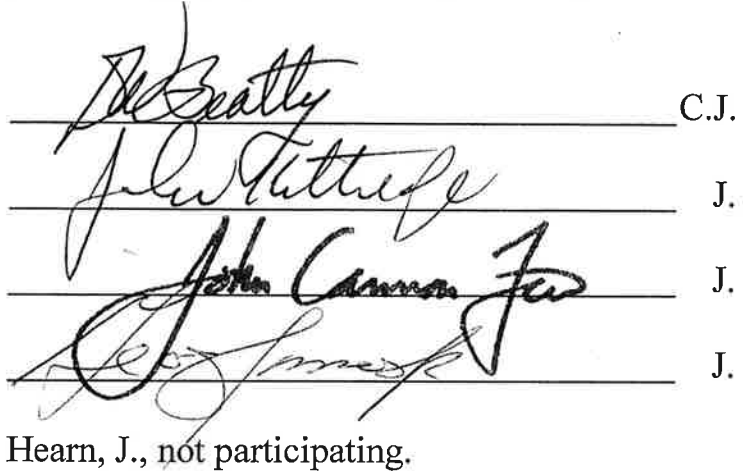 Don Beatty C.J.
John Kittredge J.
John Cannon Few J.
J.
Hearn, J., not participating.